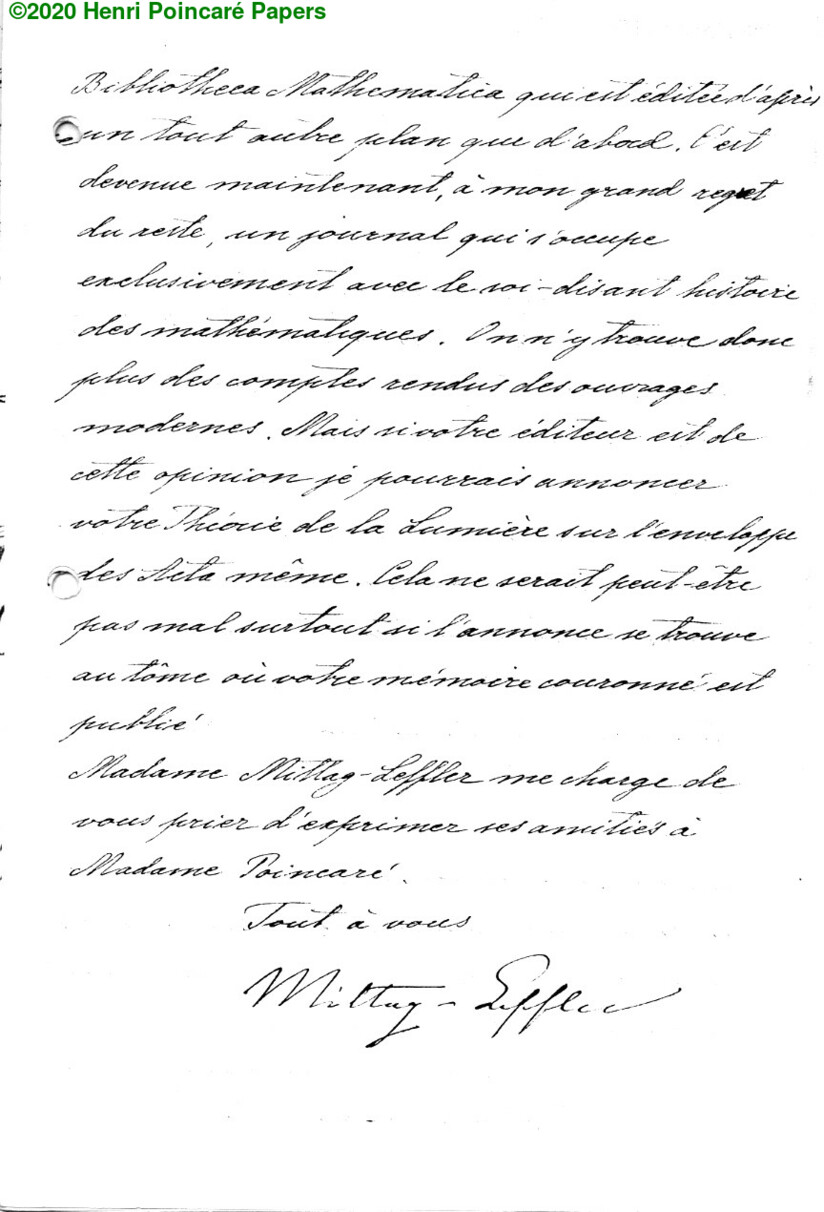 ©2020 Henri Poincaré Papers
Bibliotheca Mathematica qui est éditée d'après
un tout autre plan que d'abord. C'est
devenue maintenant, à mon grand regret
du reste, un journal qui s'occupe
exclusivement avec le soi-disant histoire
des mathématiques. On n'y trouve donc
plus des comptes rendus des ouvrages
modernes. Mais si votre éditeur est de
cette opinion je pourrais annoncer
votre Théorie de la Lumière sur l'enveloppe
des Acta même. Cela ne serait peut-être
pas mal surtout si l'annonce se trouve
au tôme où votre mémoire couronné est
publié
Madame Mittag-Leffler me charge de
vous prier d'exprimer ses amitiés à
Madame Poincaré.
Tout à vous
Mittag-Leffler